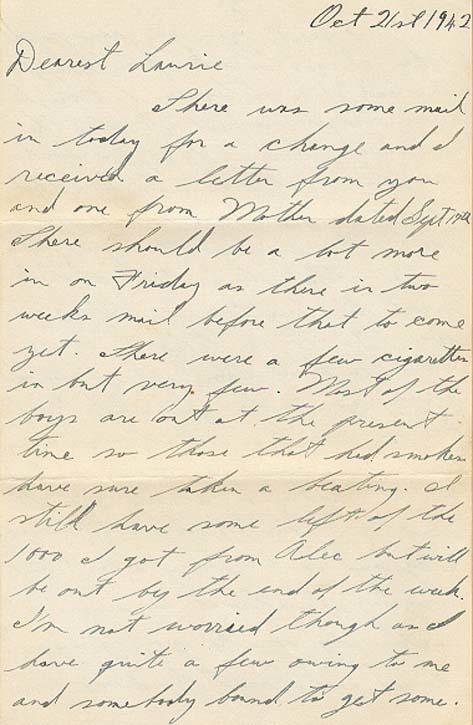 Oct 21st 1942
Dearest Laurie
There was some mail
in today for a change and I
received a letter from you
and one from Mother dated Sept 17th
There should be a lot more
in on Friday as there is two
weeks mail before that to come
yet. There were a few cigarettes
in but very few. Most of the
boys are out at the present
time so those that had smokes
have sure taken a beating. I
still have some left of the
1000 I got from Alec but will
be out by the end of the week.
I'm not worried though as I
have quite a few owing to me
and somebody bound to get some.